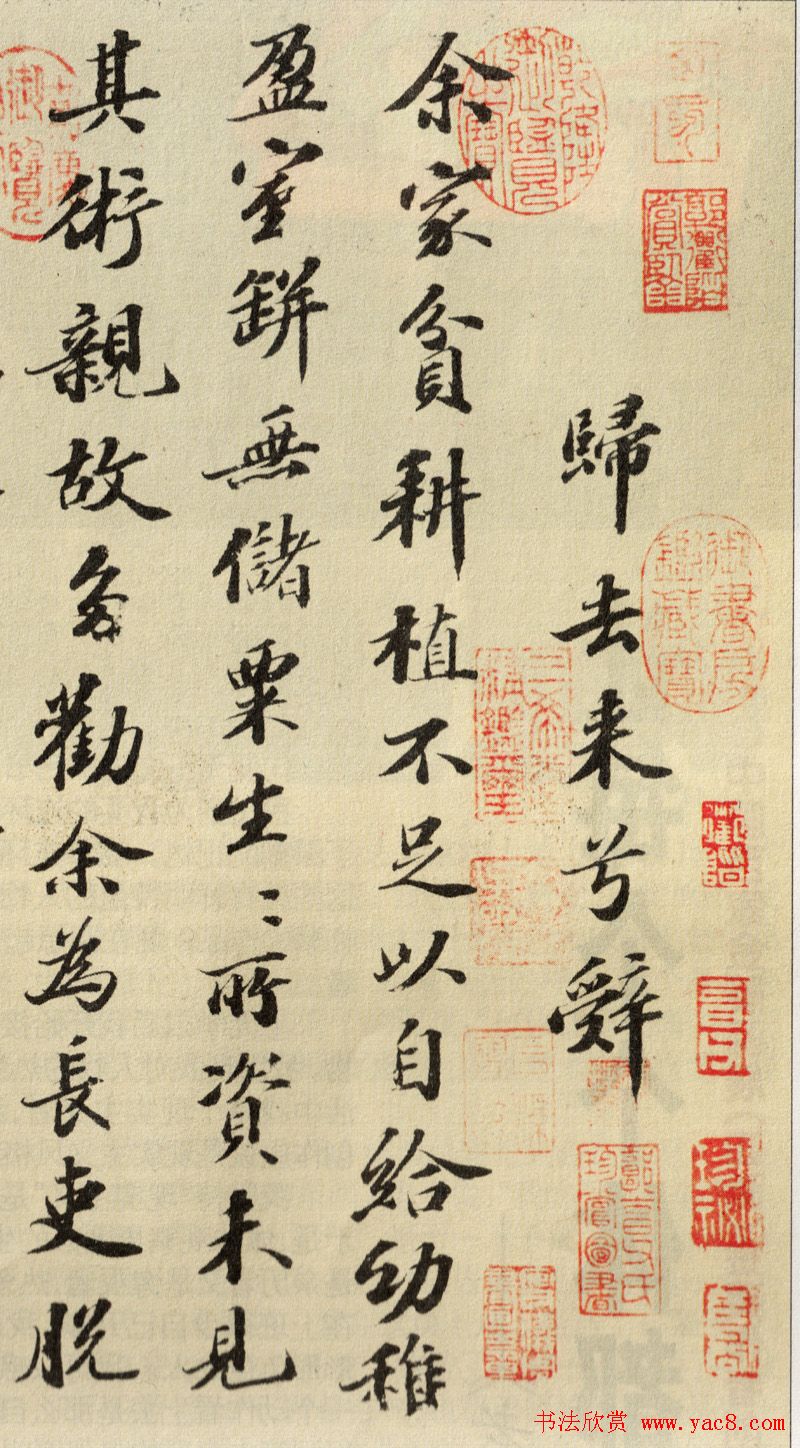 歸去来兮辭
余家貧耕植不足以自給幼稚
盈室缾無儲粟生〻所資未見
其術親故多勸余為長吏脱
書法欣赏 www.yac8.com